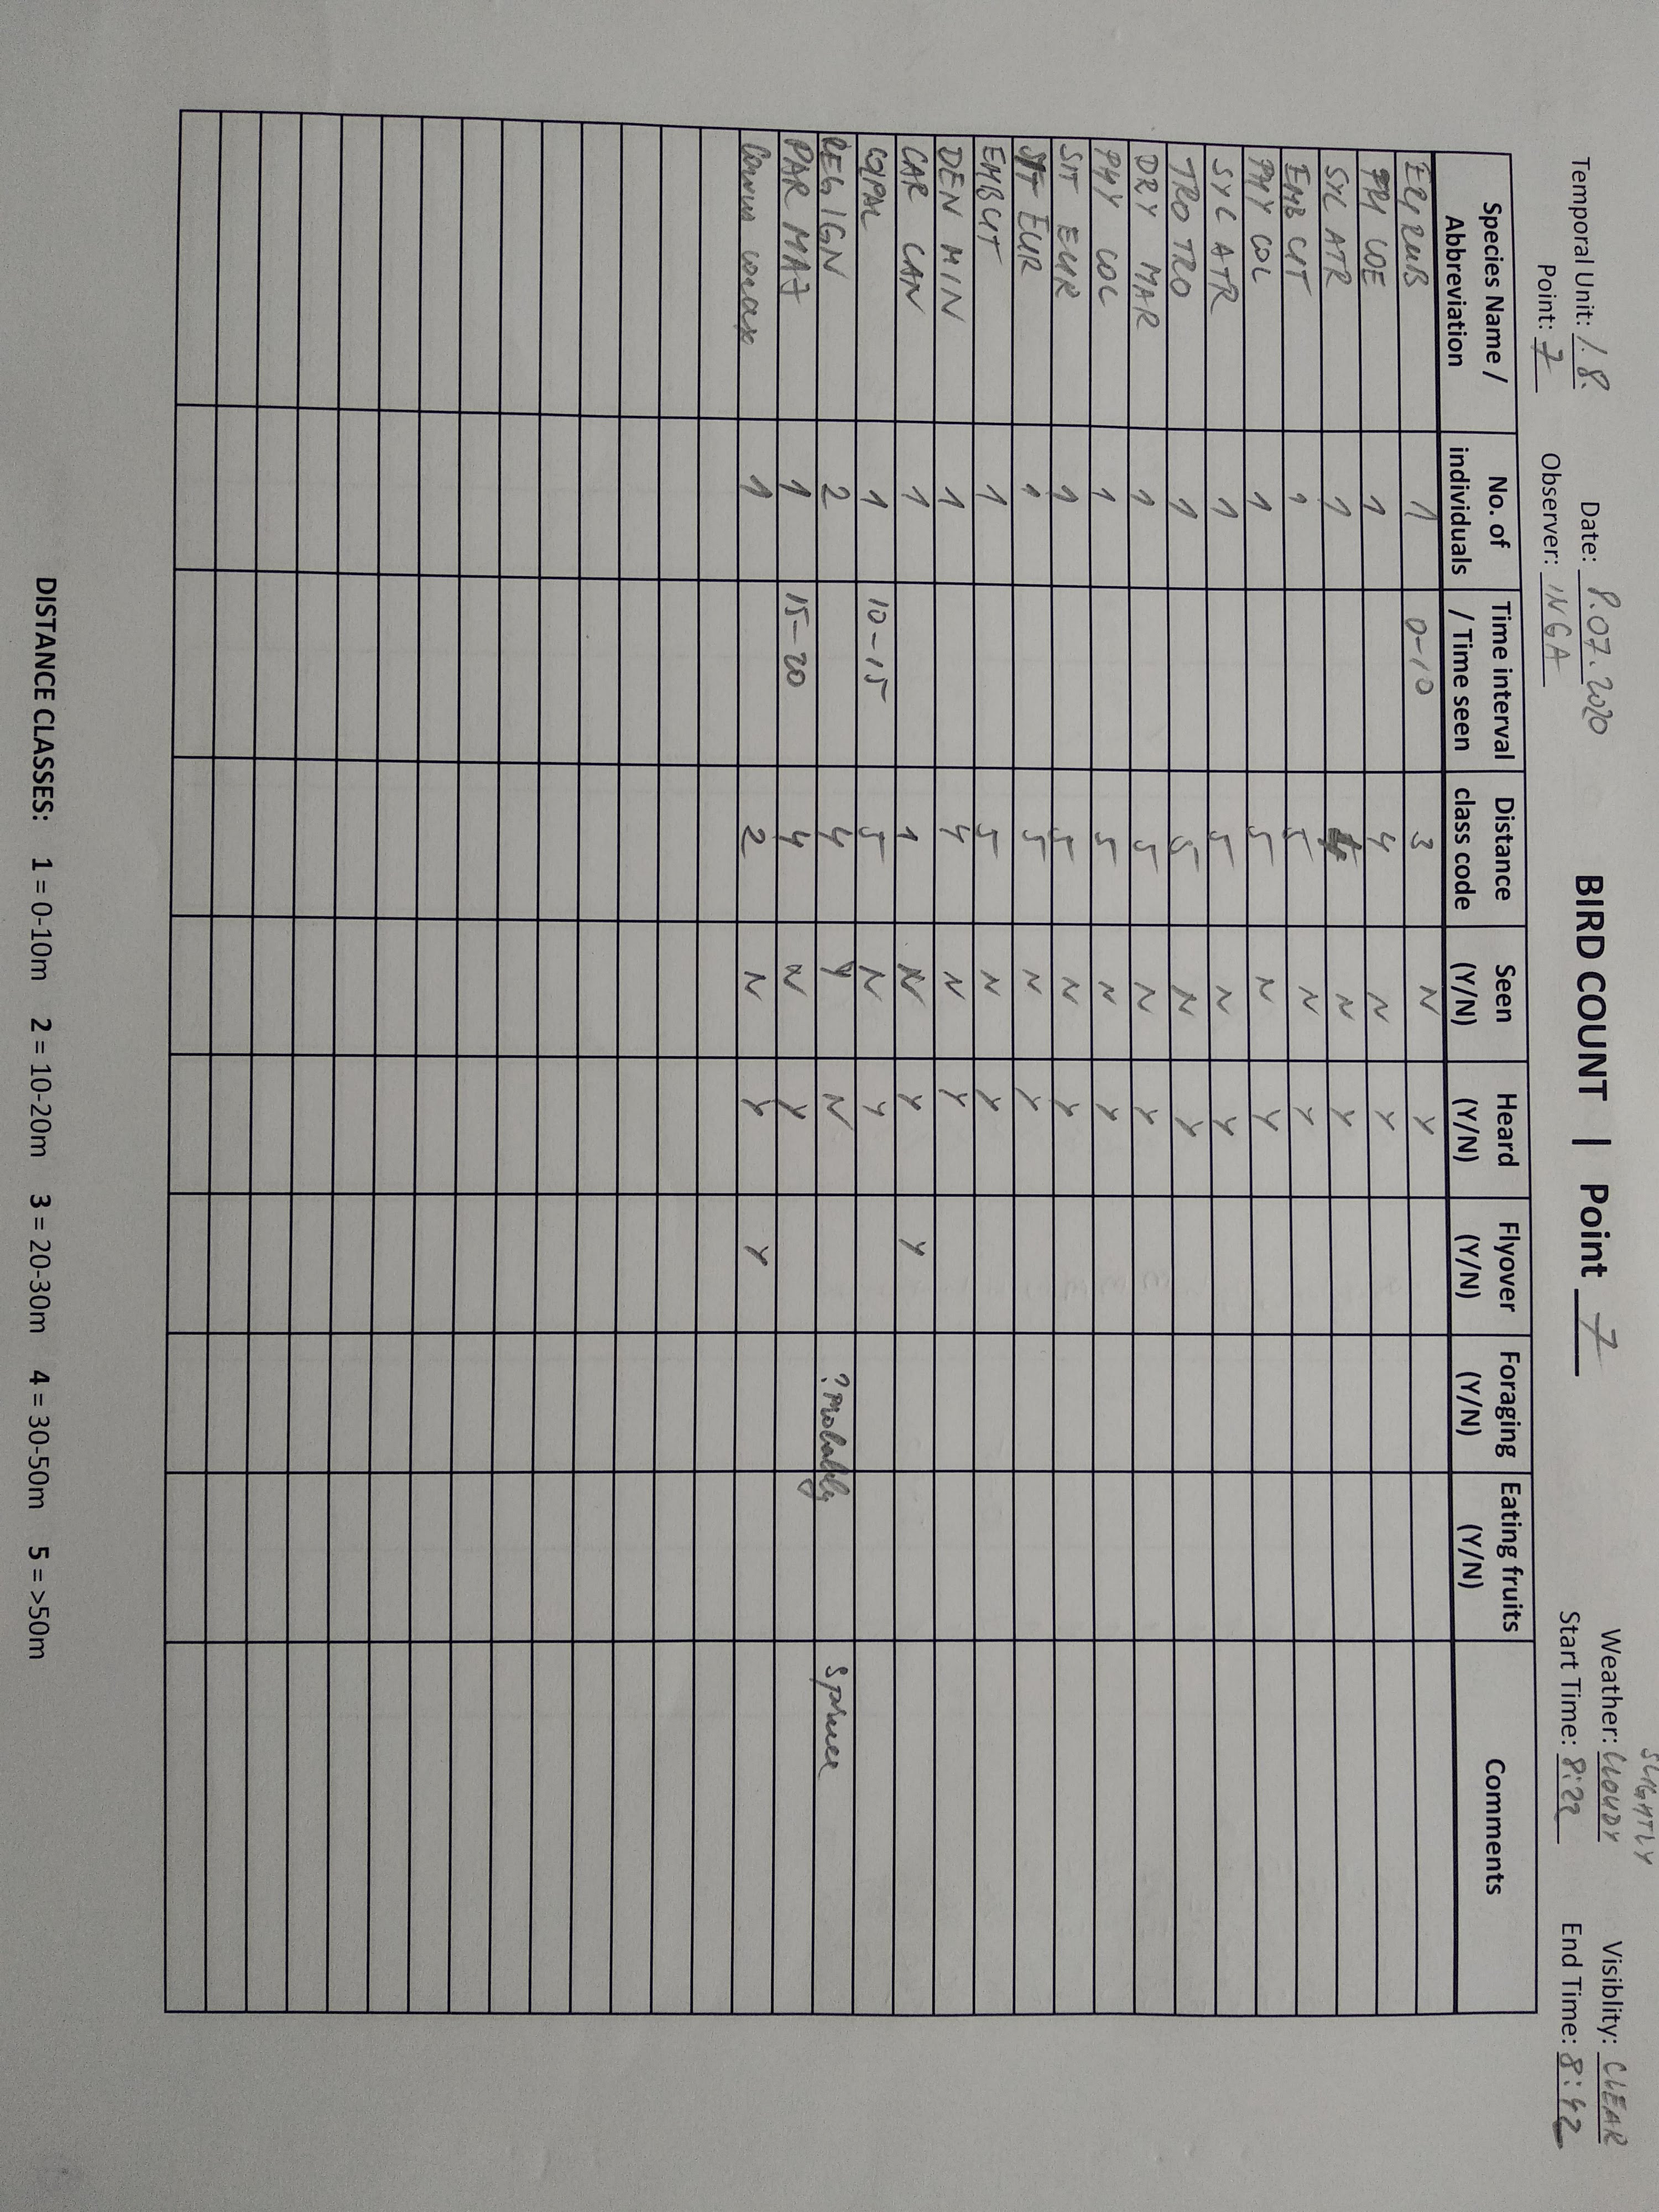 BIRD COUNT | Point 7
Temporal Unit: 1.8. Date: 8.07.2020 Weather: SLIGHTLY CLOUDY Visiblity: CLEAR
Point: 7 Observer: INGA Start Time: 8:22 End Time: 8:42
Species Name / Abbreviation No. of individuals Time interval / Time seen Distance class code Seen (Y/N) Heard (Y/N) Flyover (Y/N) Foraging (Y/N) Eating fruits (Y/N) Comments
ERYRUB 1 0-10 3 N Y
COE 1 4 N Y
SYL ATR 1 N Y
EMB CIT 1 5 N Y
PHY COL 1 5 N Y
SYL ATR 1 5 N Y
TRO TRO 1 5 N Y
DRY MAR 1 5 N Y
PHY COL 1 5 N Y
SIT EUR 1 5 N Y
SIT EUR 1 5 N Y
EMBCIT 1 5 N Y
DEN MIN 1 4 N Y
CAR CAN 1 1 N Y Y
COLPAL 1 10-15 5 N Y
REG IGN 2 4 Y N ? Probably Spruce
PAR MAJ 1 15-20 4 N Y
Corvus corax 1 2 N Y Y
DISTANCE CLASSES: 1 = 0-10m 2 = 10-20m 3 = 20-30m 4 = 30-50m 5 = >50m